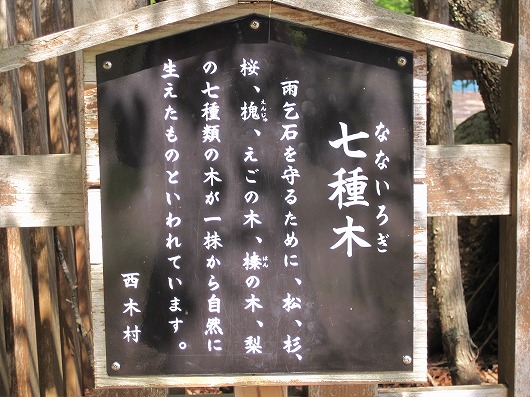 なないろぎ
七種木
雨乞石を守るために、松、杉、
桜、槐、えごの木、榛の木、梨
えんじゅ
はん
の七種類の木が一株から自然に
生えたものといわれています。
西木村